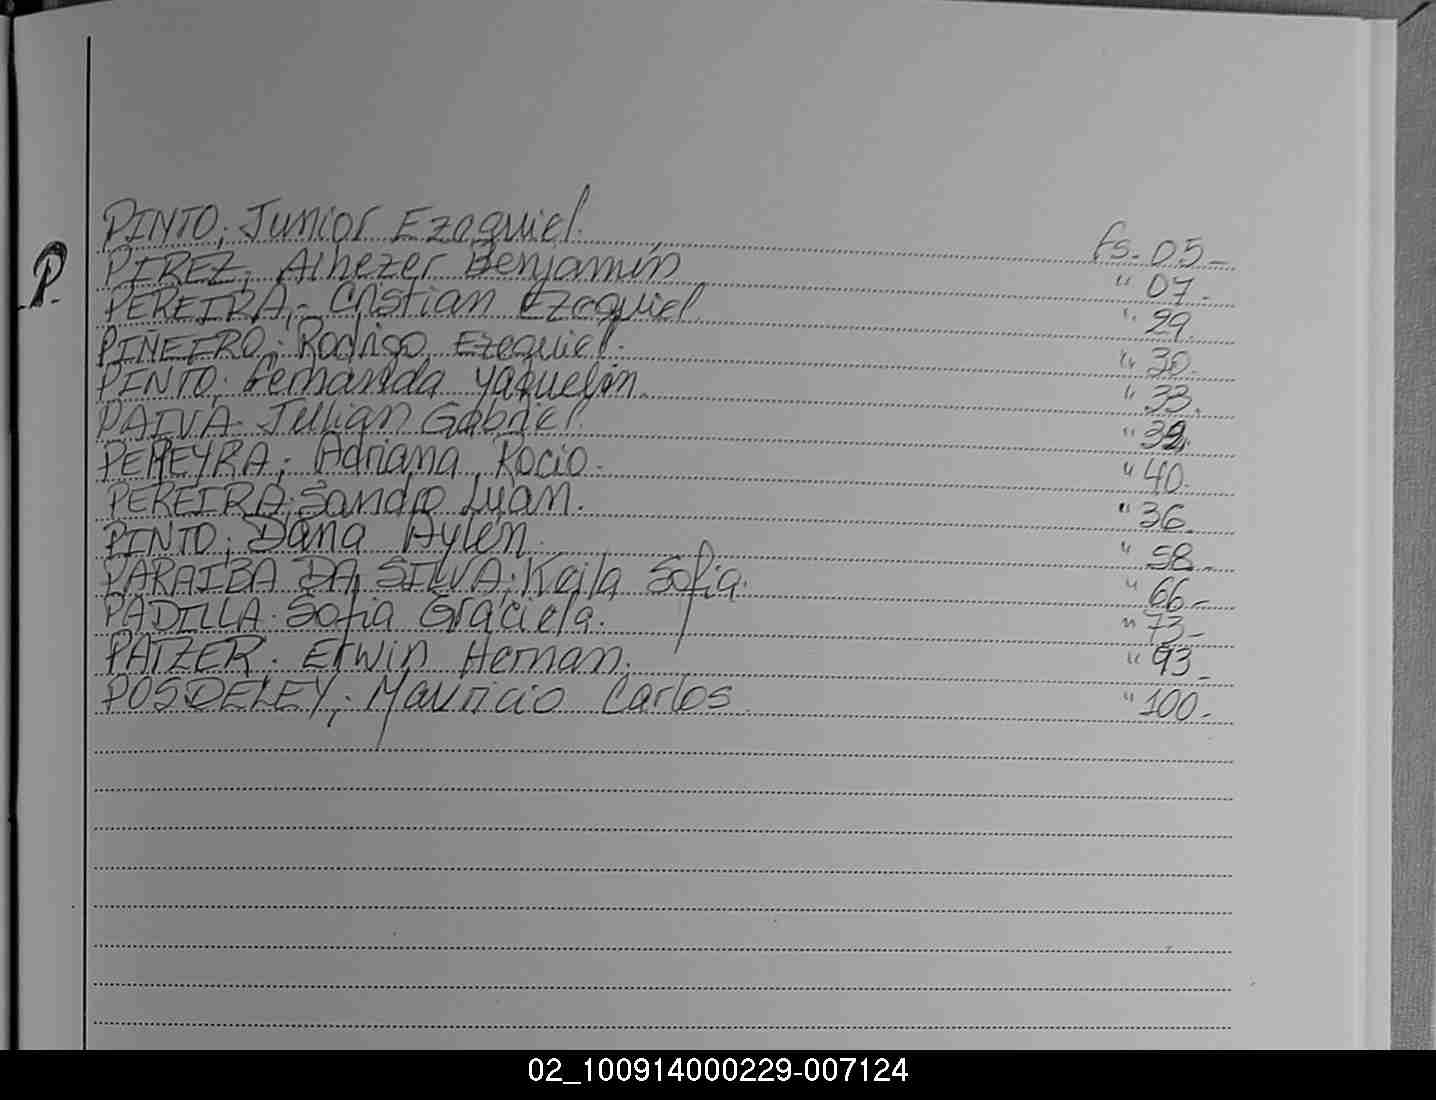 P.
PINTO; Junior Ezequiel. fs. 05-
PEREZ; Benjamín " 07-
PEREIRA,- Cristian Ezequiel. " 29.
PIÑEIRO; Rodrigo Ezequiel. " 30-
PINTO; Fernanda Yaquelin. " 33.
PAIVA- Gabriel. "
PEREYRA; Adriana Rocio. " 40-
PEREIRA; Sandro Luan. " 36.
PINTO; Dana Aylen. " 58-
PARAIBA DA SILVA; Keila Sofia. " 66-
PADILLA- Sofia Graciela. " 73-
PATZER. Erwin Hernan. " 93-
POSDELEY; Mauricio Carlos. " 100-
02_100914000229-007124